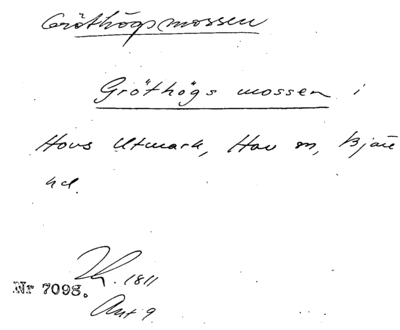 Gröthögsmossen
Gröthögs mossen i
Hovs Utmark, Hov sn, Bjäre
hd.
1811
Nr 7098.
Akt 9